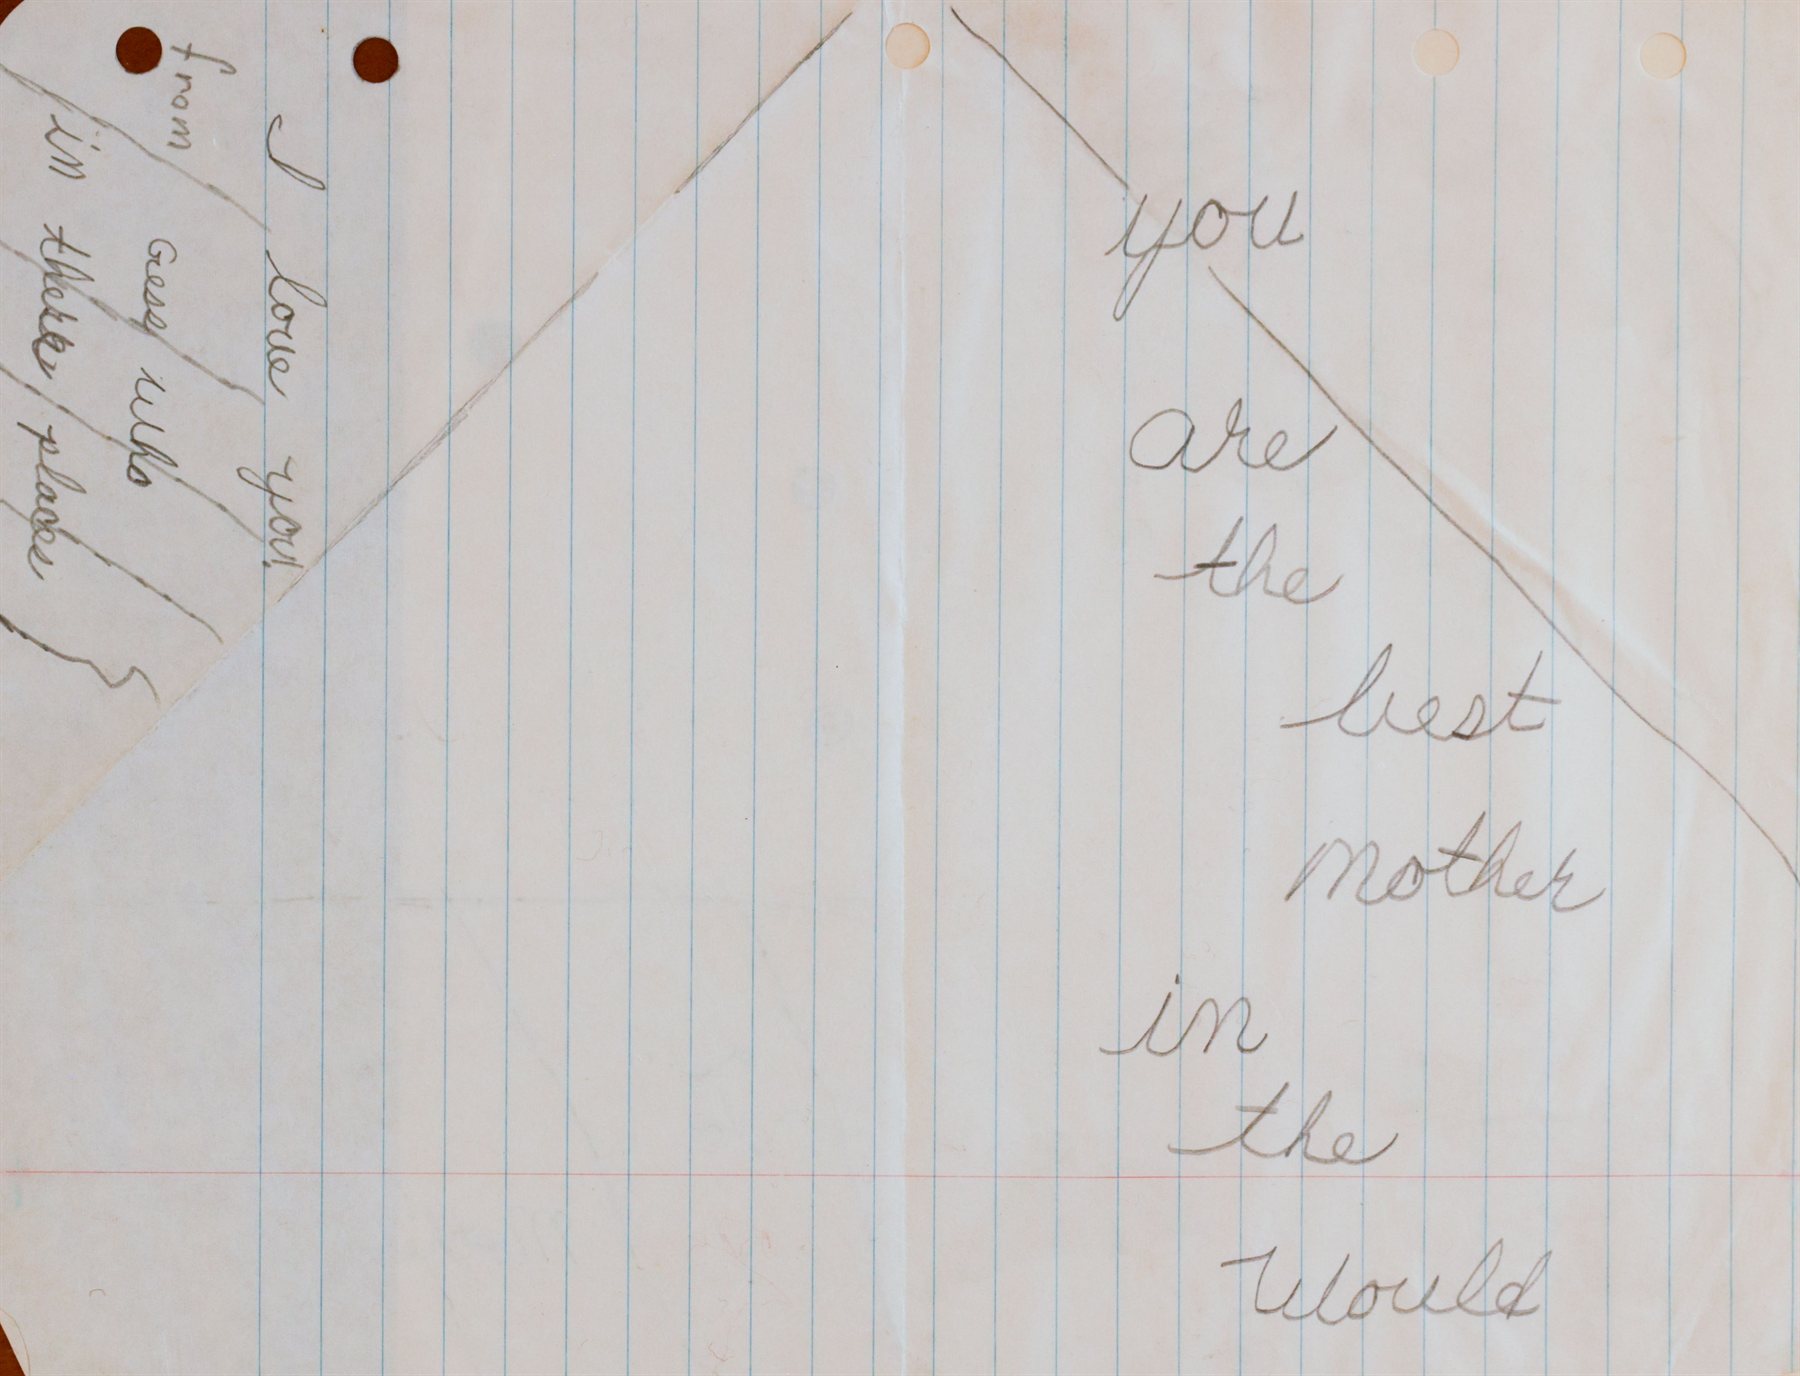 I love you!
from Gess who
in there places
you
are
the
best
mother
in
the
would